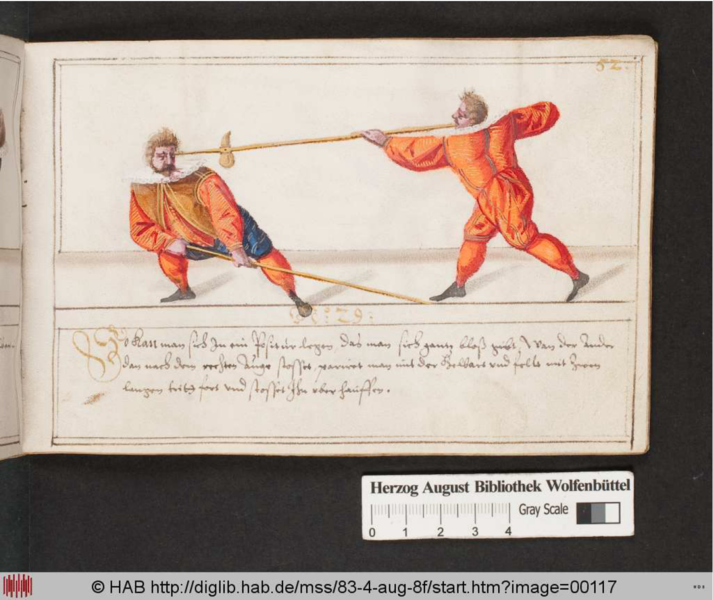 52.
No: 29:
So kan man sich In ein Positur legen, das man sich gantz bloß gibt. Wan der Ander
dan nach dem rechten Auge stosset, parirt man mit der Helbart und felt mit Zwen
langen tritt fort und stosset Ihn uber hauffen.
Herzog August Bibliothek Wolfenbüttel
Gray Scale
0 1 2 3 4
© HAB http://diglib.hab.de/mss/83-4-aug-8f/start.htm?image=00117